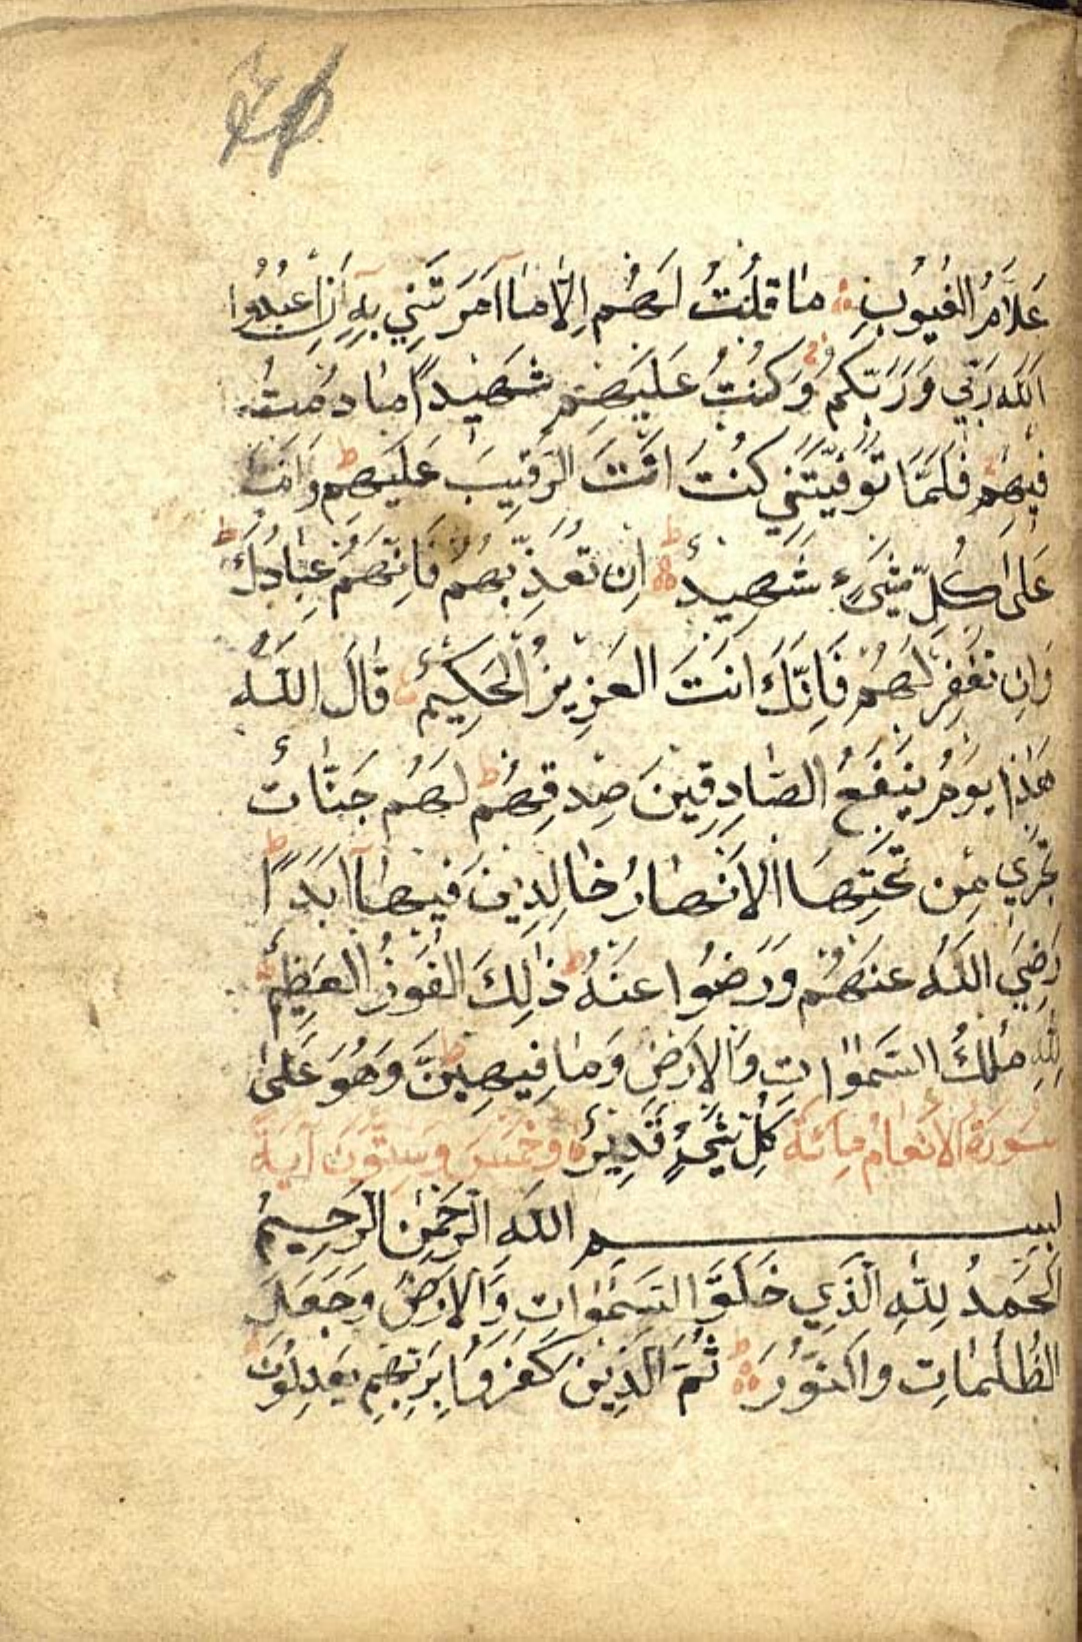 عَلَّامُ الغُيُوبِ مَا قُلْتُ لَهُم اِلَّا مَا اَمَرتَنِي بِهِ اَنِ اعبُدُوا
اللهَ رَبِّي وَرَبَّكُم وَكُنتُ عَلَيهِم شَهِيدًا مَا دُمتُ
فِيهِم فَلَمَّا تَوَفَّيتَنِي كُنتَ اَنتَ الرَّقِيبَ عَلَيهِم وَاَنتَ
عَلَى كُلِّ شَيءٍ شَهِيدٌ اِن تُعَذِّبهُم فَاِنَّهُم عِبَادُكَ
وَاِن تَغفِر لَهُم فَاِنَّكَ اَنتَ العَزِيزُ الحَكِيمُ قَالَ اللهُ
هٰذَا يَومُ يَنفَعُ الصَّادِقِينَ صِدقُهُم لَهُم جَنَّاتٌ
تَجرِي مِن تَحتِهَا الاَنهَارُ خَالِدِينَ فِيهَا اَبَدًا
رَضِيَ اللهُ عَنهُم وَرَضُوا عَنهُ ذٰلِكَ الفَوزُ العَظِيمُ
لِلّٰهِ مُلكُ السَّمٰوَاتِ وَالاَرضِ وَمَا فِيهِنَّ وَهُوَ عَلَى
سُورَةُ الاَنعَامِ مِائَةٌ كُلِّ شَيءٍ قَدِيرٌ وَخَمسٌ وَسِتُّونَ آيَةً
بِسمِ اللهِ الرَّحمٰنِ الرَّحِيمِ
اَلحَمدُ لِلّٰهِ الَّذِي خَلَقَ السَّمٰوَاتِ وَالاَرضَ وَجَعَلَ
الظُّلُمَاتِ وَالنُّورَ ثُمَّ الَّذِينَ كَفَرُوا بِرَبِّهِم يَعدِلُونَ